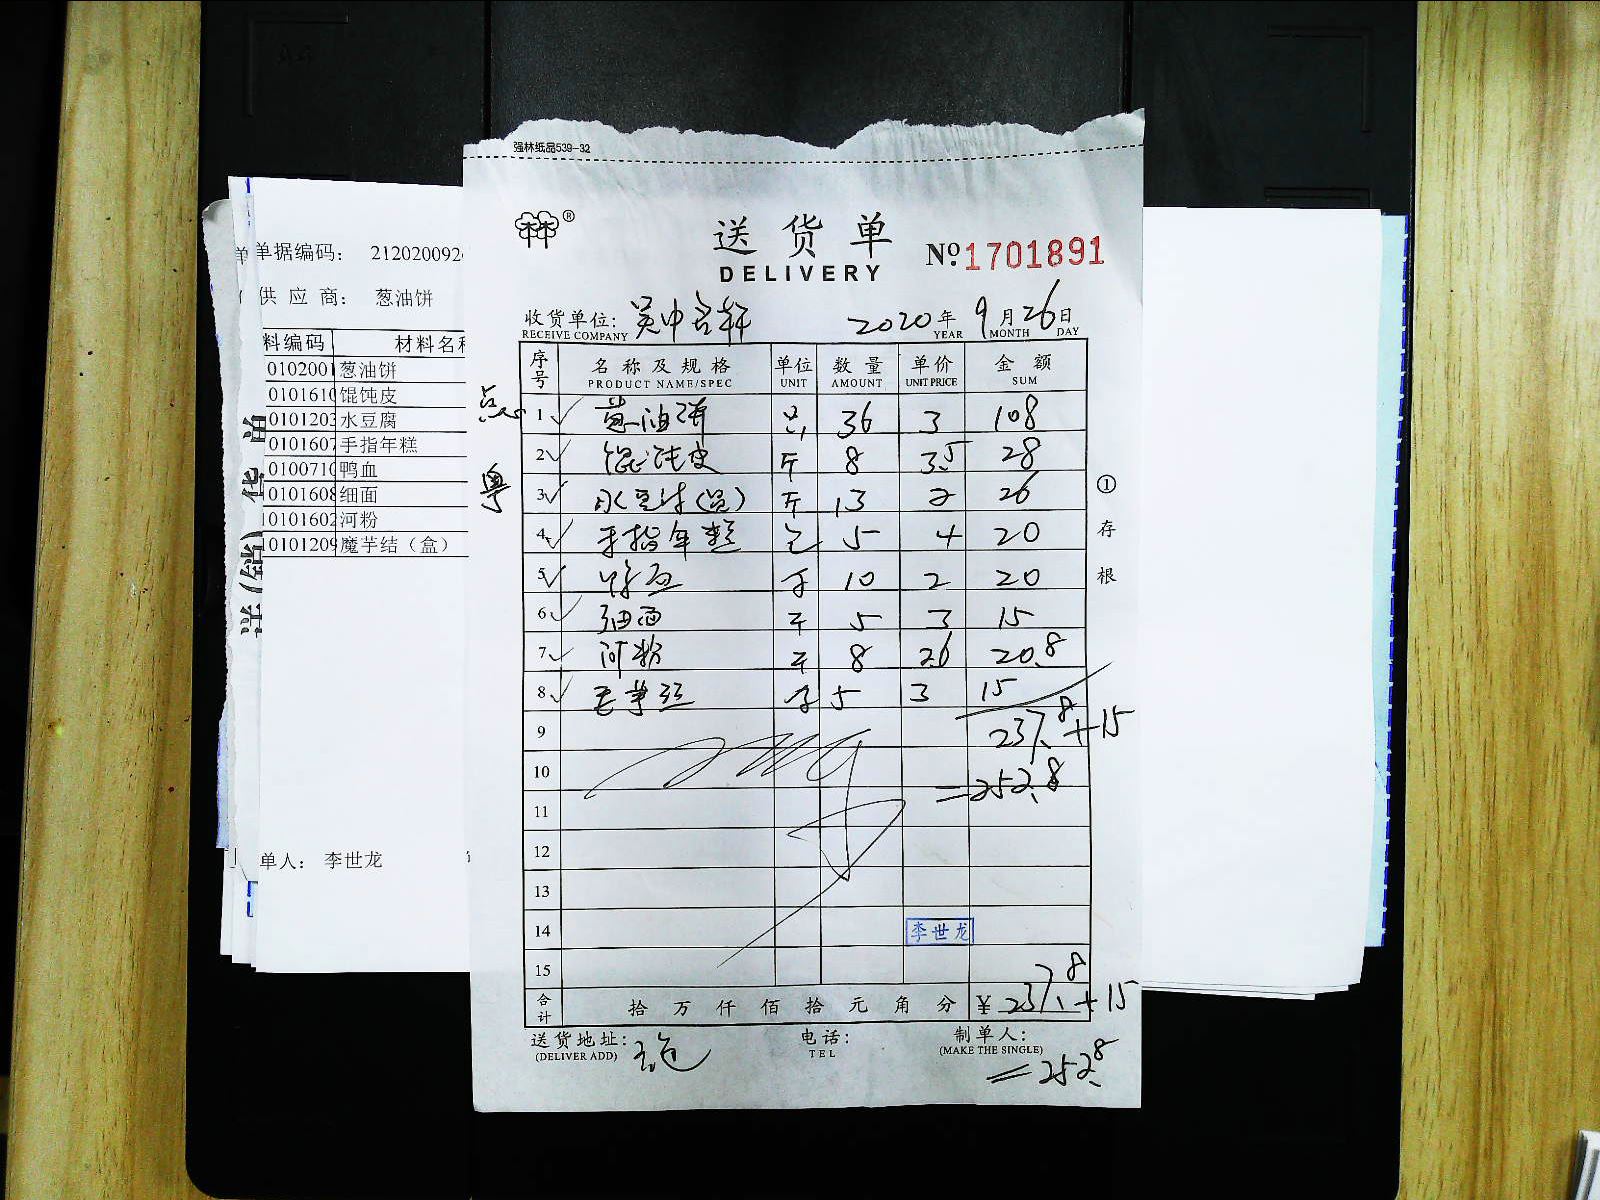 强林纸品539-32
送货单
DELIVERY
№1701891
收货单位: 吴中吉轩 2020年 9月26日
RECEIVE COMPANY YEAR MONTH DAY
序号 名称及规格 单位 数量 单价 金额
PRODUCT NAME/SPEC UNIT AMOUNT UNIT PRICE SUM
点心
1 葱油饼 只 36 3 108
2 馄饨皮 斤 8 3.5 28
粤
3 水豆腐(盒) 斤 13 2 26
4 手指年糕 包 5 4 20
5 鸭血 10 2 20
6 细面 斤 5 3 15
7 河粉 斤 8 2.6 20.8
8 5 3 15
9 237.8+15
10 =252.8
11
12
13
14 李世龙
15
合计 拾万仟佰拾元角分 ¥237.8+15
送货地址: 电话: 制单人:
(DELIVER ADD) TEL (MAKE THE SINGLE)
=252.8
①存根
单据编码: 212020092
供应商: 葱油饼
料编码 材料名称
0102001 葱油饼
0101610 馄饨皮
0101203 水豆腐
0101607 手指年糕
0100710 鸭血
0101608 细面
10101602 河粉
0101209 魔芋结(盒)
单人: 李世龙